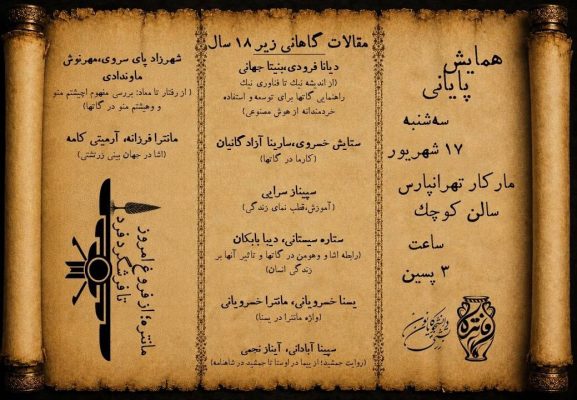 همایش
پایانی
سه‌شنبه
۱۷ شهریور
مارکار تهرانپارس
سالن کوچك
ساعت
۳ پسین
مقالات گاهانی زیر ۱۸ سال
دیانا فرودی،بنیتا جهانی
(از اندیشه نیك تا فناوری نیك
راهنمایی گاتها برای توسعه و استفاده
خردمندانه از هوش مصنوعی)
ستایش خسروی،سارینا آزادگانیان
(کارما در گاتها)
سپیناز سرایی
(آموزش،قطب نمای زندگی)
ستاره سیستانی، دیبا بابکان
(رابطه اشا و وهومن در گاتها و تاثیر آنها بر
زندگی انسان)
یسنا خسرویانی، مانترا خسرویانی
(واژه مانترا در یسنا)
سپینا آبادانی، آیناز نجمی
(روایت جمشید؛ از ییما در اوستا تا جمشید در شاهنامه)
شهرزاد پای سروی،مهرنوش
ماوندادی
( از رفتار تا معاد: بررسی مفهوم اچیشتم منو
و وهیشتم منو در گاتها)
مانترا فرزانه، آرمیتی کامه
(اشا در جهان بینی زرتشتی)
مانتره؛ از فروغ امروز
تا فرشگرد فردا